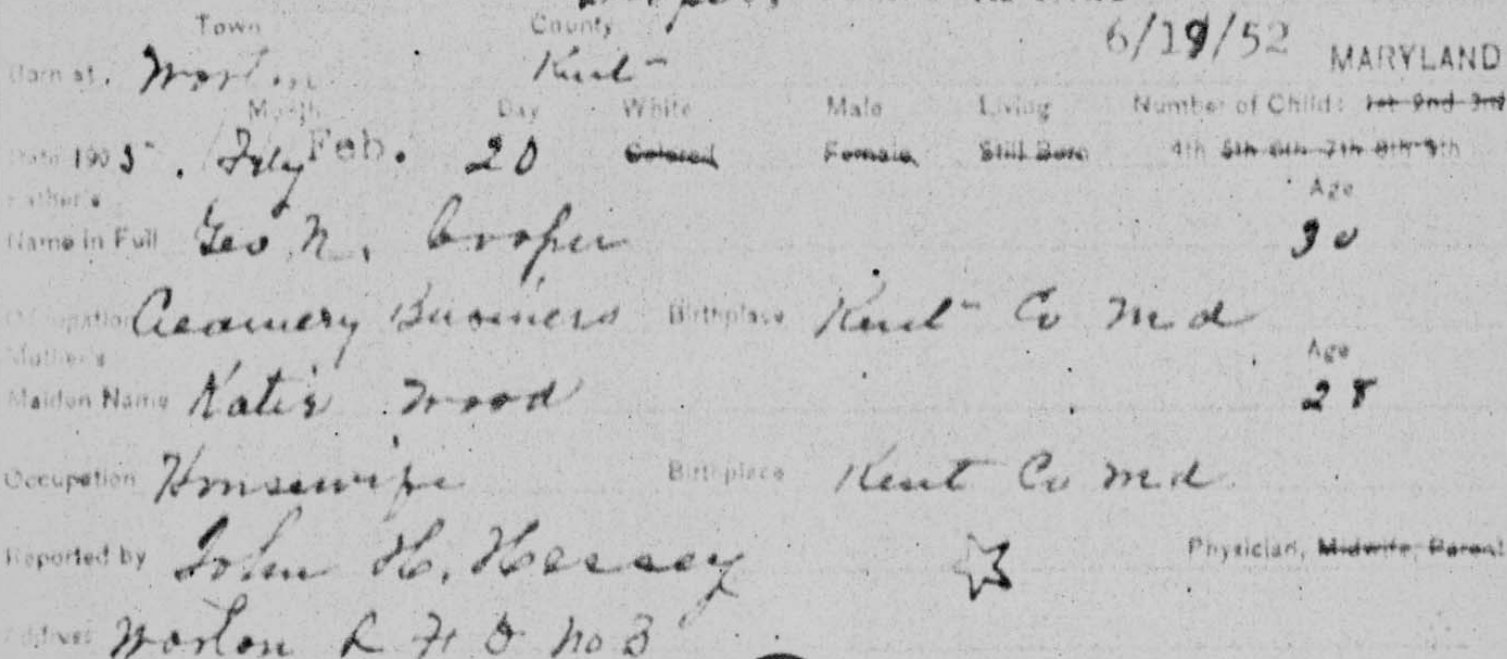 Town County 6/19/52 MARYLAND
Born at. Worton Kent
Month Day White Male Living Number of Child: 1st 2nd 3rd
Date 1905. Feb. 20 Colored Female, Still Born 4th 5th 6th 7th 8th 9th
Father's Age
Name in Full Geo. N. Cooper 30
Occupation Creamery Business Birthplace Kent Co Md
Mother's Age
Maiden Name Katie Wood 28
Occupation Housewife Birthplace Kent Co Md
Reported by John H. Hessey Physician, Midwife, Parent
Address Worton R F D No 3